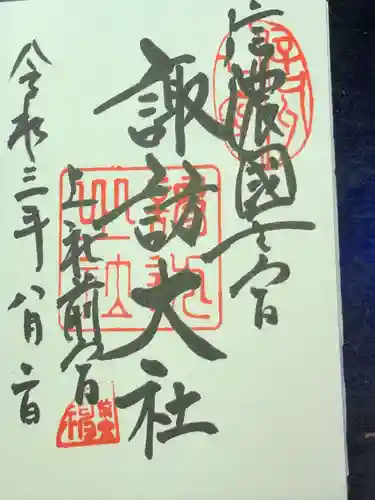 信濃國一之宮
諏訪大社
上社前宮
令和三年八月二日